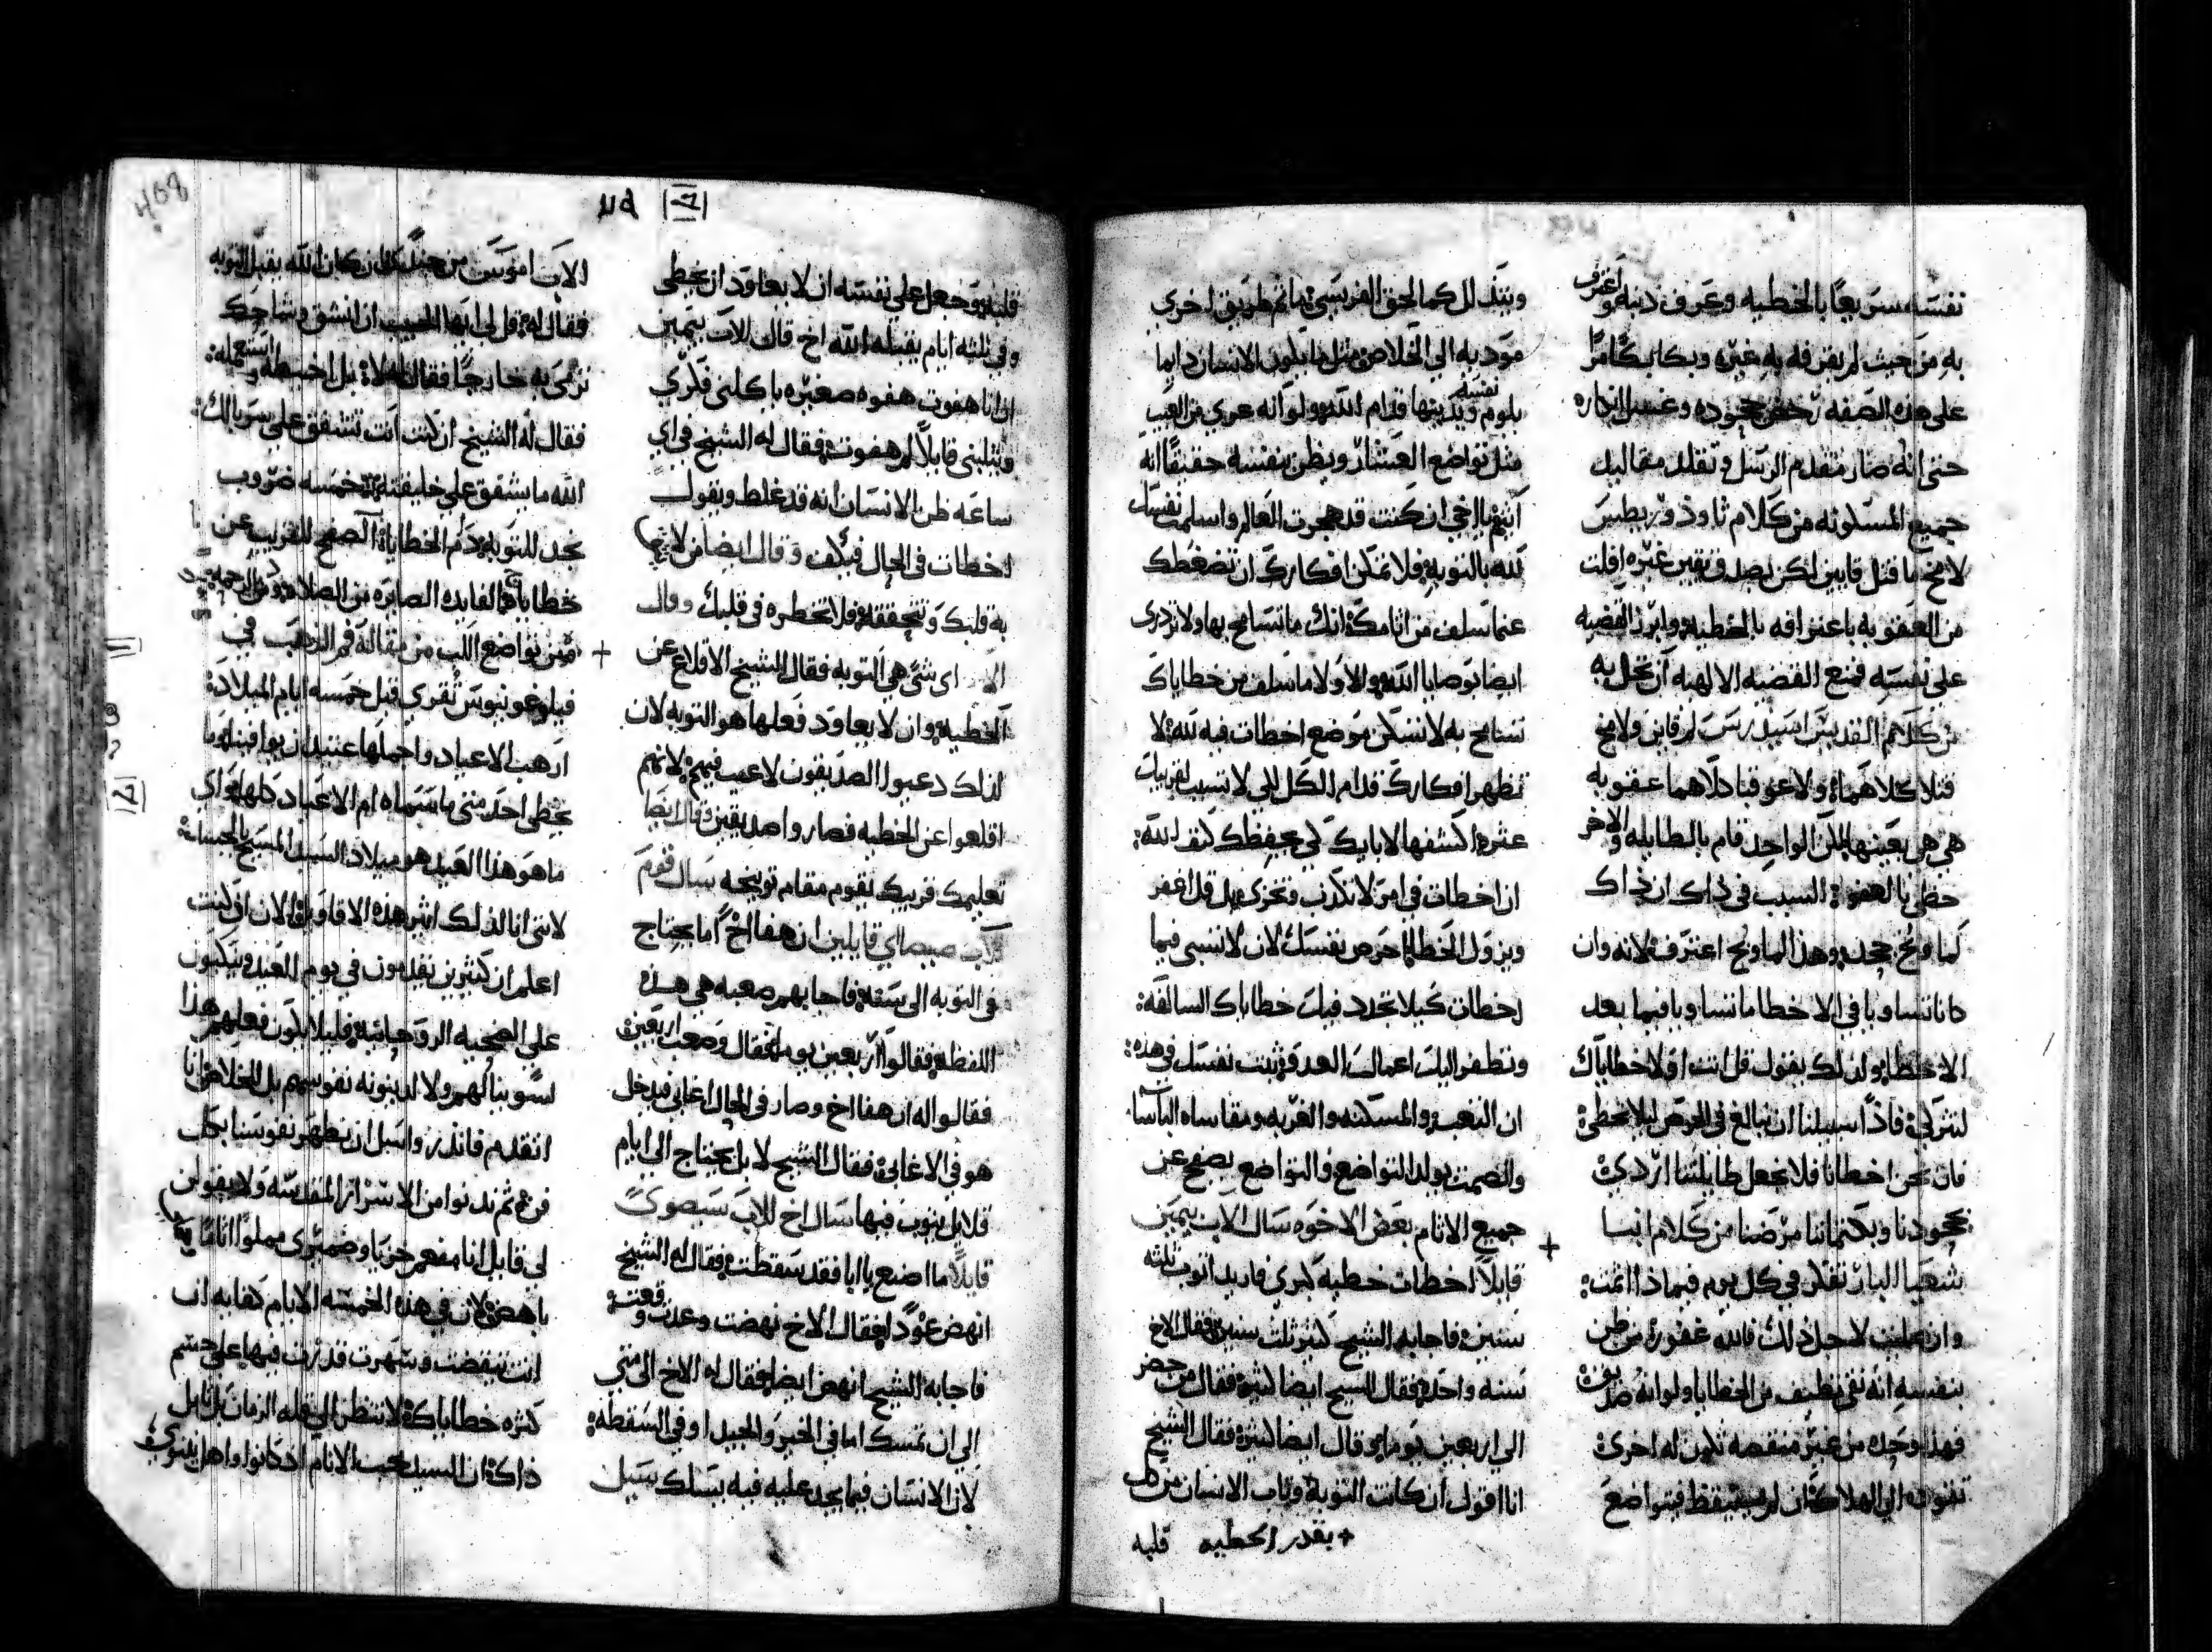 نفسه سريعًا بالخطيه وعرف دينه واعترف
به من حيث لم يقرفه به غيره وبكا بكًا مرًا
على هذه الصفه رحض جحوده وغسل انكاره
حتى انه صار متقدم الرسل وتقلد مقاليد
جميع المسكونه من كلام ثاودوريطس
لامخ ما قتل قايين لكن بصدق يقين غيره افلت
من العقوبه باعترافه بالخطيه وابرز القضيه
على نفسه فمنع القضيه الالهيه ان تحل به
من كلام القديس اسيدرس لم قاين ولامخ
قتلا كلاهما ولا عوقبا كلاهما عقوبه
هي هي بعينها لكن الواحد قام بالطايله والاخر
حظي بالعفو السبب في ذاك ان ذاك
لما وبخ جحد وهذا لما وبخ اعترف لانه وان
كانا تساويا في الاخطا ما تساويا فيما بعد
الاخطا ولذلك يقول قل انت اولا خطاياك
لتتزكى فاذًا سبيلنا ان نبالغ في الحرص ليلا نخطي
فان نحن اخطانا فلا نجعل طايلتنا اردي
بجحودنا وبكتماننا مرضنا من كلام انبا
شعيا البار تفكر في كل يوم فيما ذا اثمت
وان صليت لاجل ذلك فالله غفور من ظن
بنفسه انه نقي نظيف من الخطايا ولو انه صديق
فهذا وحده من غير منقصه تكون له اخرى
تقوده الى الهلاك ان لم يستيقظ فيتواضع
ويتذلل كما لحق الفريسي ما ثم طريق اخرى
موديه الى الخلاص مثل ما يكون الانسان دايما
يلوم نفسه ويدينها قدام الله ولو انه عري من العيب
مثل تواضع العشار ويظن بنفسه حقيقًا انه
اثيم يا اخي ان كنت قد هجرت العالم واسلمت نفسك
لله بالتوبه فلا تمكن افكارك ان تضغطك
عما سلف من اثامك انك ما تسامح بها ولا تزدرى
ايضا بوصايا الله والا ولا ما سلف من خطاياك
تسامح به لا تسكن موضع اخطات فيه لله لا
تظهر افكارك قدام الكل لكي لا تسبب لقريبك
عثره اكشفها لابايك لكي يحفظك كنف الله
ان اخطات في امر لا تكذب وتخزى بل قل اغفر
ويزول الخطا احرص نفسك لان لا تنسى فيما
اخطات كيلا تجدد فيك خطاياك السالفه
وتظفر اليك اعمال العدو ثبت نفسك في هذه
ان التعب والمسكنه والغربه ومقاساه الباسا
والصمت يولد التواضع والتواضع يصفح عن
جميع الاثام بعض الاخوه سال الاب بيمين
قايلاً اخطات خطيه كبرى فاريد اتوب ثلثه
سنين فاجابه الشيخ كثير ثلث سنين فقال الاخ
سنه واحده فقال الشيخ ايضا كثير فقال من حضر
الى اربعين يوما وقال ايضا كثير فقال الشيخ
انا اقول ان كانت التوبه وتاب الانسان من كل
+ بقدر الخطيه قلبه
408
قلبه وجعل على نفسه ان لا يعاود ان يخطي
وفي ثلثه ايام يقبله الله اخ قال للاب بيمين
ان انا هفوت هفوه صغيره ياكلني فكري
ويثلبني قايلاً لم هفوت فقال له الشيخ في اي
ساعه ظن الانسان انه قد غلط ويقول
اخطات في الحال فيكف وقال ايضا من لا
به قلبك وتتحققه فلا تخطره في قلبك وقال
اي شى هي التوبه فقال الشيخ الاقلاع عن
الخطيه وان لا يعاود فعلها هو التوبه لان
لذلك دعيوا الصديقون لا عيب فيهم لانهم
اقلعوا عن الخطيه فصاروا صديقين وقال ايضا
تعليمك قريبك يقوم مقام توبيخه سال قوم
للاب صيصاي قايلين ان هفا اخ اما يحتاج
في التوبه الى سنه فاجابهم صعبه هي هذه
اللفظه فقالوا اربعين يوم فقال وصعب اربعين
فقالوا له ان هفا اخ وصار في الحال اغابي فيدخل
هو في الاغابي فقال الشيخ لا بل يحتاج الى ايام
قلايل يتوب فيها سال اخ للاب سيصوي
قايلاً ما اصنع يا ابا فقد سقطت فقال له الشيخ
انهض عودًا فقال الاخ نهضت وعدت وقعت
فاجابه الشيخ انهض ايضا فقال له الاخ الى متى
الى ان تمسك اما في الخير والجيد او في السقطه
لان الانسان فيما يجد عليه فيه يسلك سبيل
الاب امونين من جندي ان كان الله يقبل التوبه
فقال له قل لي ايها الحبيب ان انشق وشاحك
ترمى به خارجًا فقال له لا بل اخيطه واستعمله
فقال له الشيخ ان كنت انت تشفق على سربالك
الله ما يشفق على خليقته خمسه ضروب
نجد للتوبه ذم الخطايا الصفح للقريب عن
خطاياه الفايده الصايره من الصلاه ومن الرحمه
ومن تواضع اللب من مقاله فم الذهب في
فيلوغونيوس تقري قبل خمسه ايام الميلاد
ارهب الاعياد واجملها عتيد ان يوافينا وما
يخطي احد متى ما سماه ام الاعياد كلها واي
ما هو هذا العيد هو ميلاد السيد المسيح بالجسد
لانني انا لذلك اثير هذه الاقاويل الان اني كنت
اعلم ان كثيرين يتقدمون في يوم العيد وينكبون
على الضحيه الروحانيه فليلا يكون فعلهم هذا
لسوبنا لهم ولا لدينونه نفوسهم بل للخلاص انا
اتقدم فانذر واسل ان نطهر نفوسنا بكل
فن ثم ندنوا من الاسرار المقدسه ولا يقولن
لي قايل انا مفعم خزيا وضميرى مملوًا اثاما
باهض لان في هذه الخمسه الايام كفايه ان
انت تيقضت وسهرت قدرت فيها على حسم
كثره خطاياك لا تنظر الى قله الزمان بل تامل
ذاك ان السيد محب الانام اذ كانوا اهل نينوي